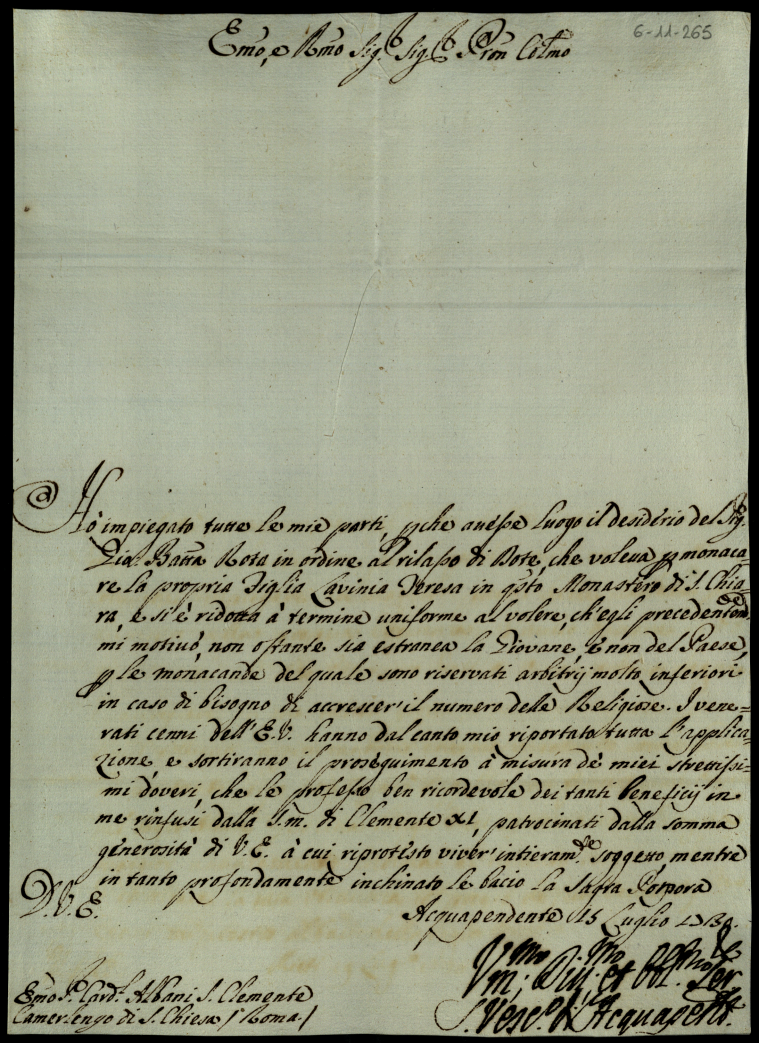 6-11-265
Emo, e Rmo Sig.r Sig.r Pron Colmo
Hò impiegato tutte le mie parti, pche avesse luogo il desiderio del Sig.
Gio: Batta Rota in ordine al rilasso di Dote, che voleva p monaca=
re la propria Figlia Lavinia Teresa in qsto Monastero di S. Chia=
ra, e si è ridotta à termine uniforme al volere, ch'egli precedentem.te
mi motivò, non ostante sia estranea la Giovane, e non del Paese,
p le monacande del quale sono riservati arbitrij molto inferiori
in caso di bisogno di accrescer' il numero delle Religiose. I vene=
rati cenni dell'E.V. hanno dal canto mio riportato tutta l'applica=
zione, e sortiranno il proseguimento à misura dè miei strettissi=
mi doveri, che le professo ben ricordevole dei tanti beneficij in
me rinfusi dalla S.m. di Clemente XI, patrocinati dalla somma
generosità di V.E. à cui riprotesto viver' intieram.te soggetto, mentre
in tanto profondamente inchinato le bacio la Sagra Porpora
D.V.E.
Acquapendente 15 Luglio
Vm: Div: et Obl. Ser
Vesc.o di Acquapend.
Emo S.r Card.l Albani S. Clemente
Camerlengo di S. Chiesa /Roma/